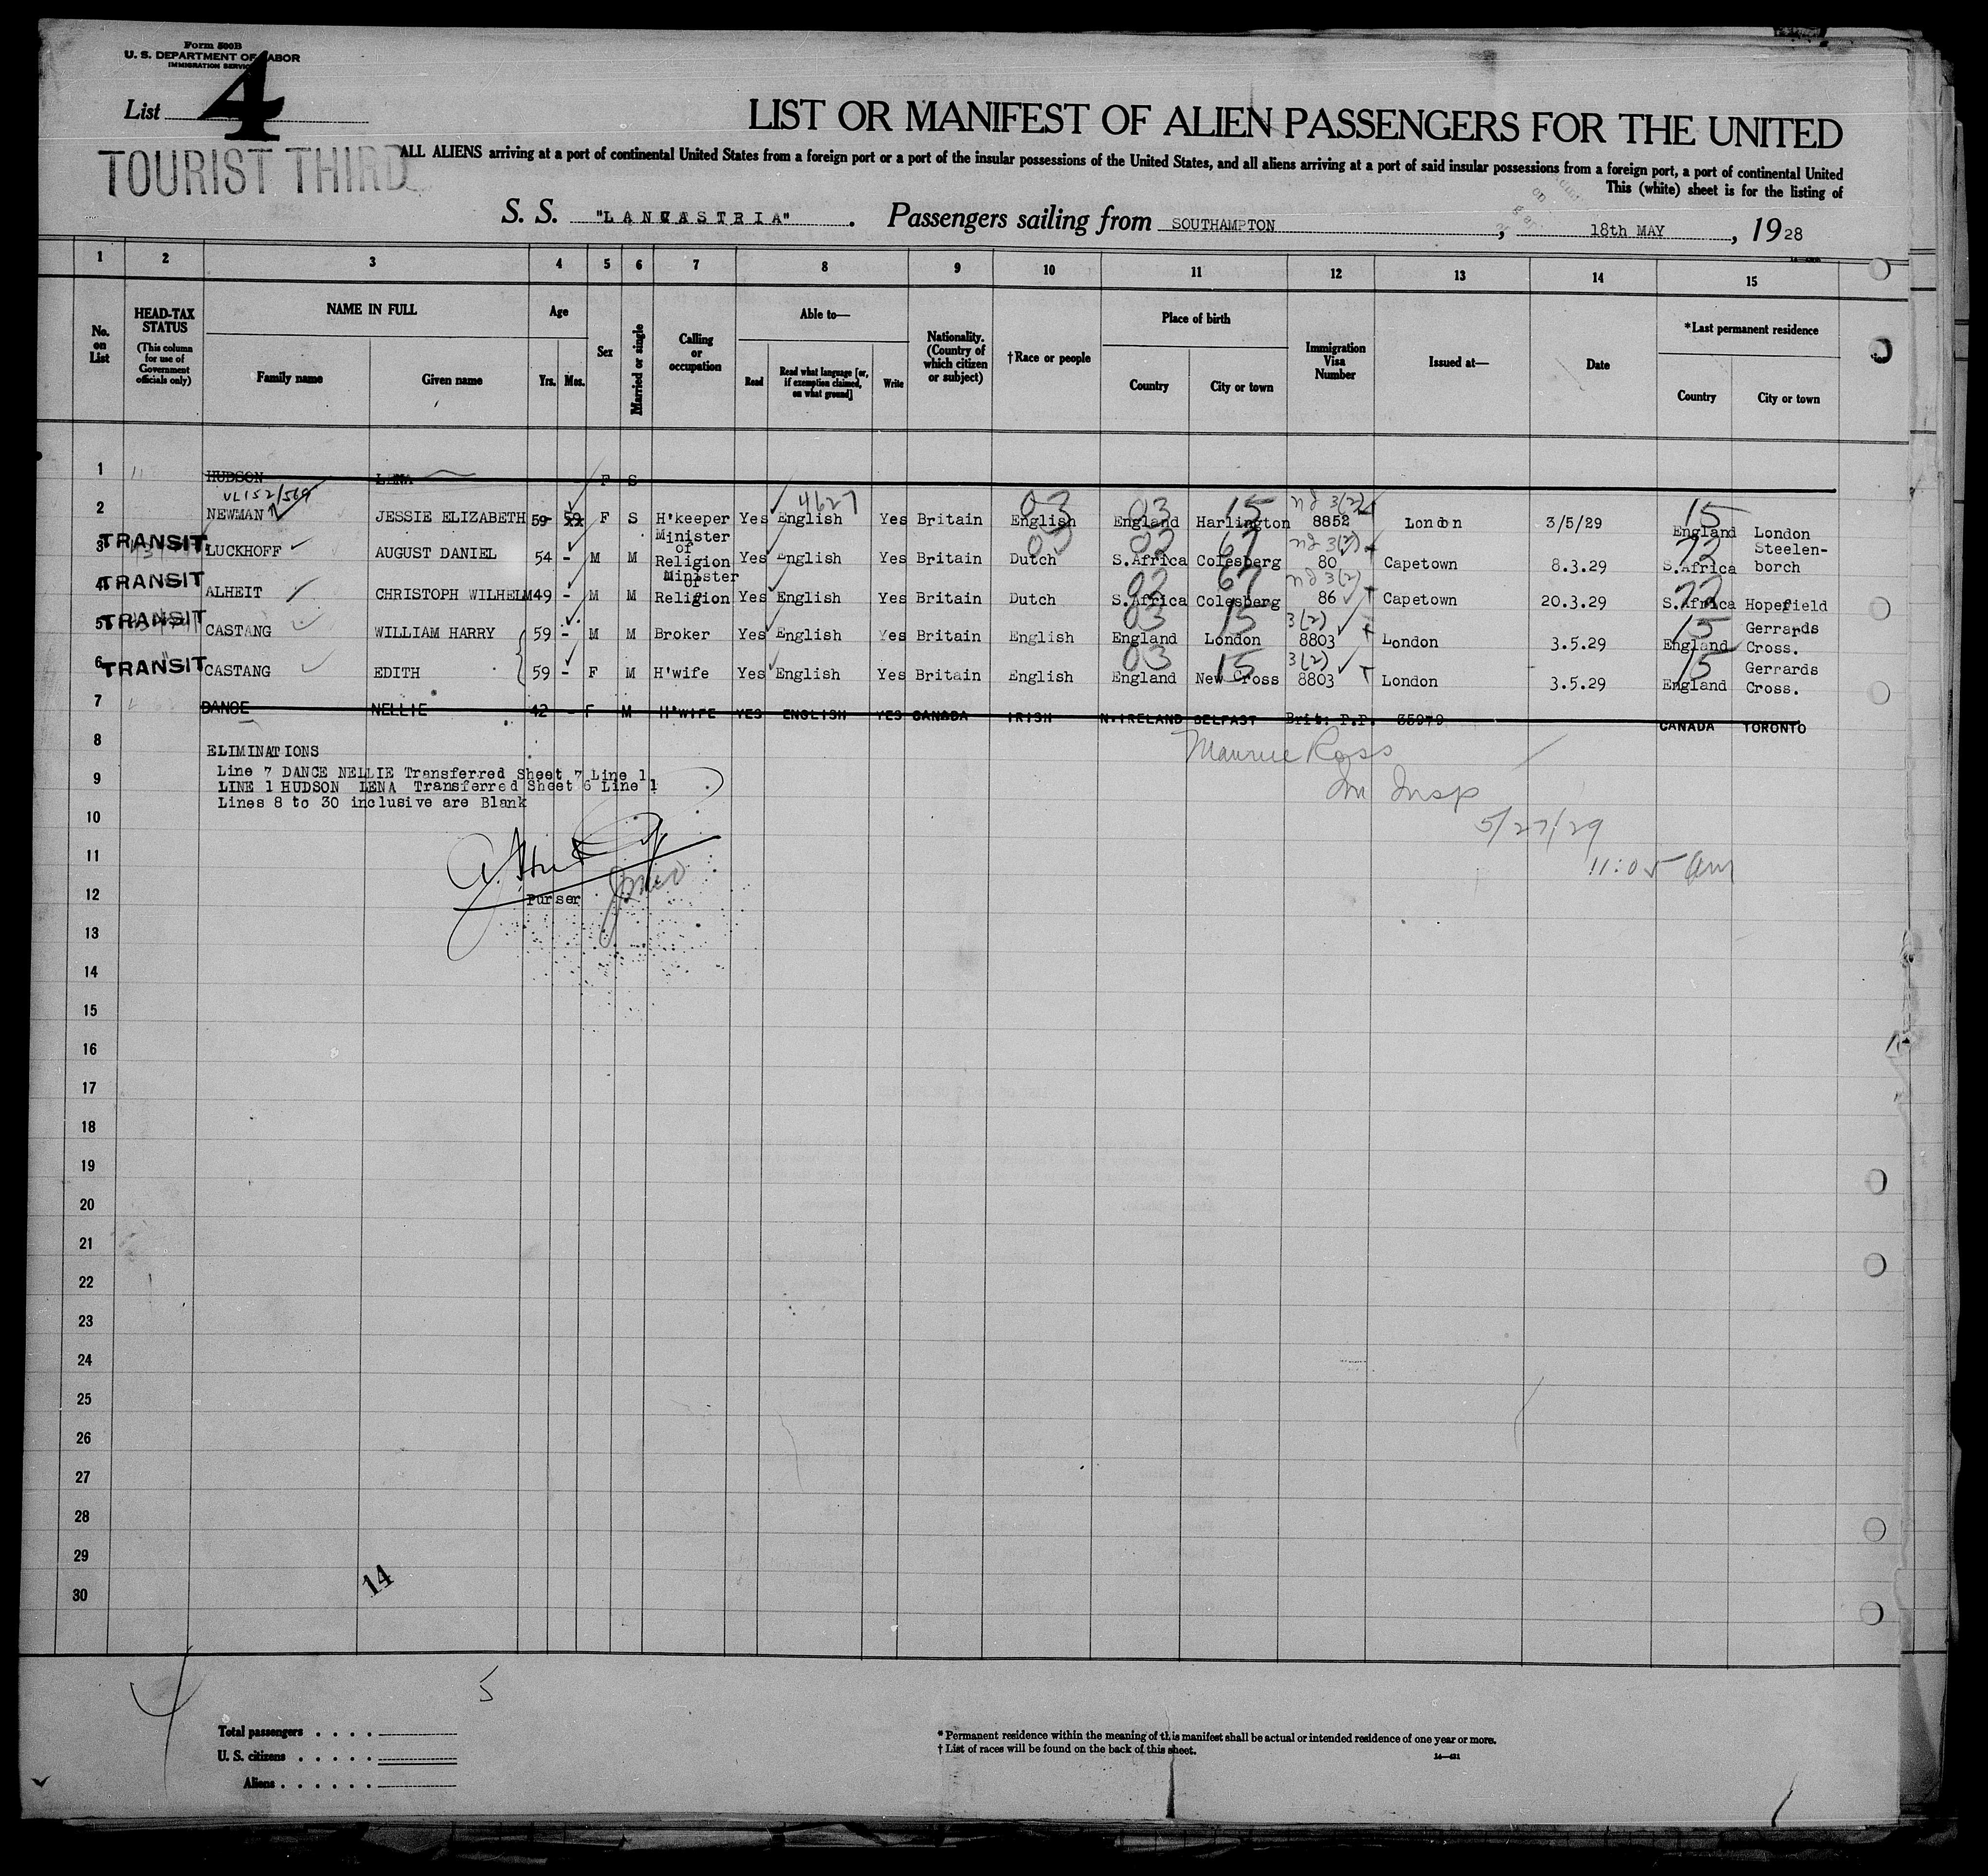 Form 500B
U. S. DEPARTMENT OF LABOR
IMMIGRATION SERVICE
List 4
TOURIST THIRD
LIST OR MANIFEST OF ALIEN PASSENGERS FOR THE UNITED
ALL ALIENS arriving at a port of continental United States from a foreign port or a port of the insular possessions of the United States, and all aliens arriving at a port of said insular possessions from a foreign port, a port of continental United
This (white) sheet is for the listing of
S. S. "LANCASTRIA". Passengers sailing from SOUTHAMPTON, 18th MAY, 1928
1 2 3 4 5 6 7 8 9 10 11 12 13 14 15
No. on List
HEAD-TAX STATUS (This column for use of Government officials only)
NAME IN FULL
Family name Given name
Age
Yrs. Mos.
Sex
Married or single
Calling or occupation
Able to—
Read Read what language [or, if exemption claimed, on what ground] Write
Nationality. (Country of which citizen or subject)
†Race or people
Place of birth
Country City or town
Immigration Visa Number
Issued at—
Date
*Last permanent residence
Country City or town
1 HUDSON LENA F S
VL152/569 4627 03 03 15 nd 3(2) 15
2 NEWMAN JESSIE ELIZABETH 59 - 59 F S H'keeper Yes English Yes Britain English England Harlington 8852 London 3/5/29 England London
02 67 nd 3(2) 72
3 TRANSIT LUCKHOFF AUGUST DANIEL 54 - M M Minister of Religion Yes English Yes Britain Dutch S.Africa Colesberg 80 Capetown 8.3.29 S.Africa Steelen-borch
02 67 nd 3(2) 72
4 TRANSIT ALHEIT CHRISTOPH WILHELM 49 - M M Minister of Religion Yes English Yes Britain Dutch S.Africa Colesberg 86 Capetown 20.3.29 S.Africa Hopefield
03 15 3(2) 15
5 TRANSIT CASTANG WILLIAM HARRY 59 - M M Broker Yes English Yes Britain English England London 8803 London 3.5.29 England Gerrards Cross.
03 15 3(2) 15
6 TRANSIT CASTANG EDITH 59 - F M H'wife Yes English Yes Britain English England New Cross 8803 London 3.5.29 England Gerrards Cross.
7 DANCE NELLIE 42 - F M H'WIFE YES ENGLISH YES CANADA IRISH N.IRELAND BELFAST Brit: P.P. 35979 CANADA TORONTO
8 ELIMINATIONS
Maurice Ross
Line 7 DANCE NELLIE Transferred Sheet 7 Line 1
9 LINE 1 HUDSON LENA Transferred Sheet 6 Line 1
Im Insp
Lines 8 to 30 inclusive are Blank
10
5/27/29
11
11:05 am
12
Purser
13
14
15
16
17
18
19
20
21
22
23
24
25
26
27
28
29
30
14
5
Total passengers . . . .
U. S. citizens . . . . .
Aliens . . . . . .
* Permanent residence within the meaning of this manifest shall be actual or intended residence of one year or more.
† List of races will be found on the back of this sheet.
14—421